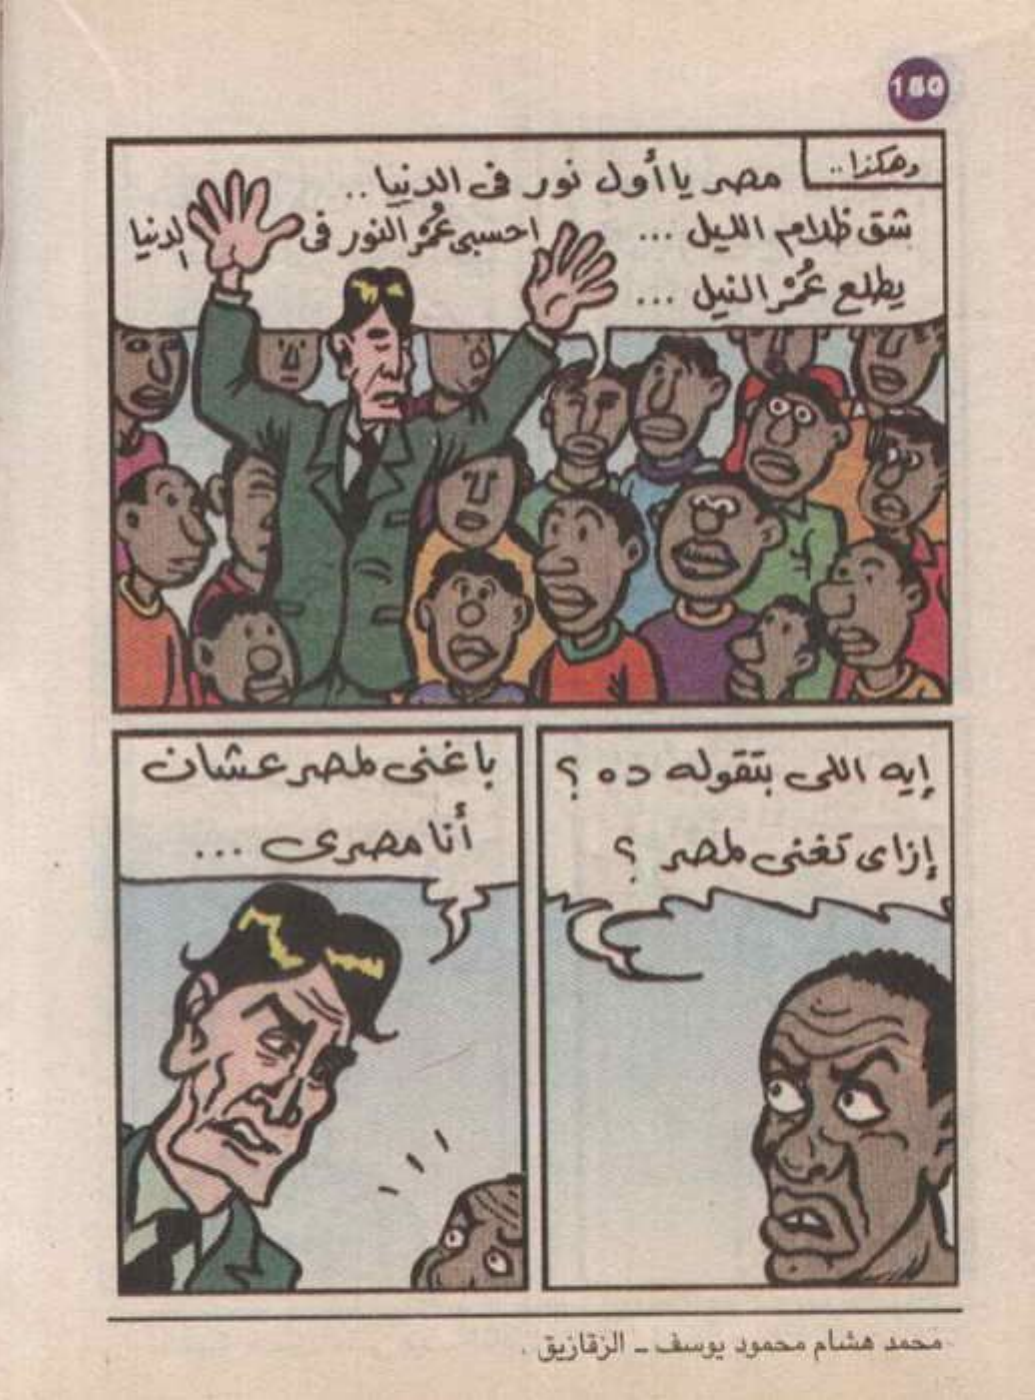 160
وهكذا..
مصر يا أول نور فى الدنيا..
شق ظلام الليل ...
احسبى عُمْر النور فى الدنيا
يطلع عُمْر النيل ...
إيه اللى بتقوله ده ؟
إزاى تغنى لمصر ؟
باغنى لمصر عشان
أنا مصرى ...
محمد هشام محمود يوسف ـ الزقازيق .